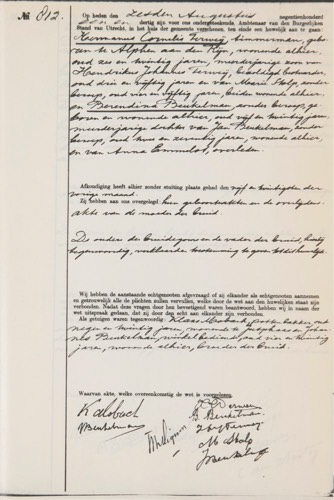 No 812.
Op heden den zesden Augustus negentienhonderd
dertig zijn voor ons ondergeteekende, Ambtenaar van den Burgerlijken
Stand van Utrecht, in het huis der gemeente verschenen, ten einde een huwelijk aan te gaan:
Hermanus Cornelis Verweij, timmerman, gebo-
ren te Alphen aan den Rijn, wonende alhier,
oud zes en twintig jaren, meerderjarige zoon van
Hendrikus Johannes Verweij,
oud drie en vijftig jaren, en van Maria Stolp, zonder
beroep, oud vier en vijftig jaren, beiden wonende alhier,
en Berendina Beukelman, zonder beroep, ge-
boren en wonende alhier, oud vijf en twintig jaren,
meerderjarige dochter van Jan Beukelman, zonder
beroep, oud twee en zeventig jaren, wonende alhier,
en van Anna overleden.
Afkondiging heeft alhier zonder stuiting plaats gehad den vijf en twintigsten der
vorige maand.
Zij hebben aan ons overgelegd hun geboorteakten en de overlijdens-
akte van de moeder der bruid.
De ouders des bruidegoms en de vader der bruid, hierbij
tegenwoordig, verklaarden toestemming te geven tot dit huwelijk.
Wij hebben de aanstaande echtgenooten afgevraagd of zij elkander als echtgenooten aannemen
en getrouwelijk alle de plichten zullen vervullen, welke door de wet aan den huwelijken staat zijn
verbonden. Nadat deze vragen door hen bevestigend waren beantwoord, hebben wij in naam der
wet uitspraak gedaan, dat zij door den echt aan elkander zijn verbonden.
Als getuigen waren tegenwoordig: Klaas oud
negen en twintig jaren, wonende te en Johan-
nes Beukelman, winkelbediende, oud vier en twintig
jaren, wonende alhier, broeder der bruid.
Waarvan akte, welke overeenkomstig de wet is voorgelezen.
Verweij
Beukelman
B. Beukelman
M. Stolp
J Beukelman